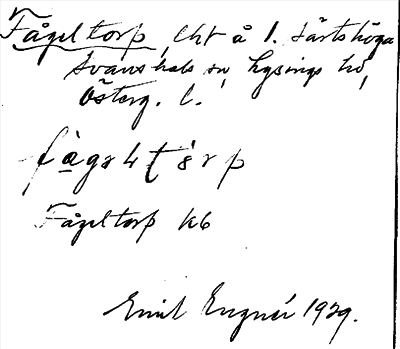 Fågeltorp, cht å 1. Särtshöga
Svanshals sn, Lysings hd,
Österg. l.
fàgəltórp
Fågeltorp kb
Emil Engner 1929.